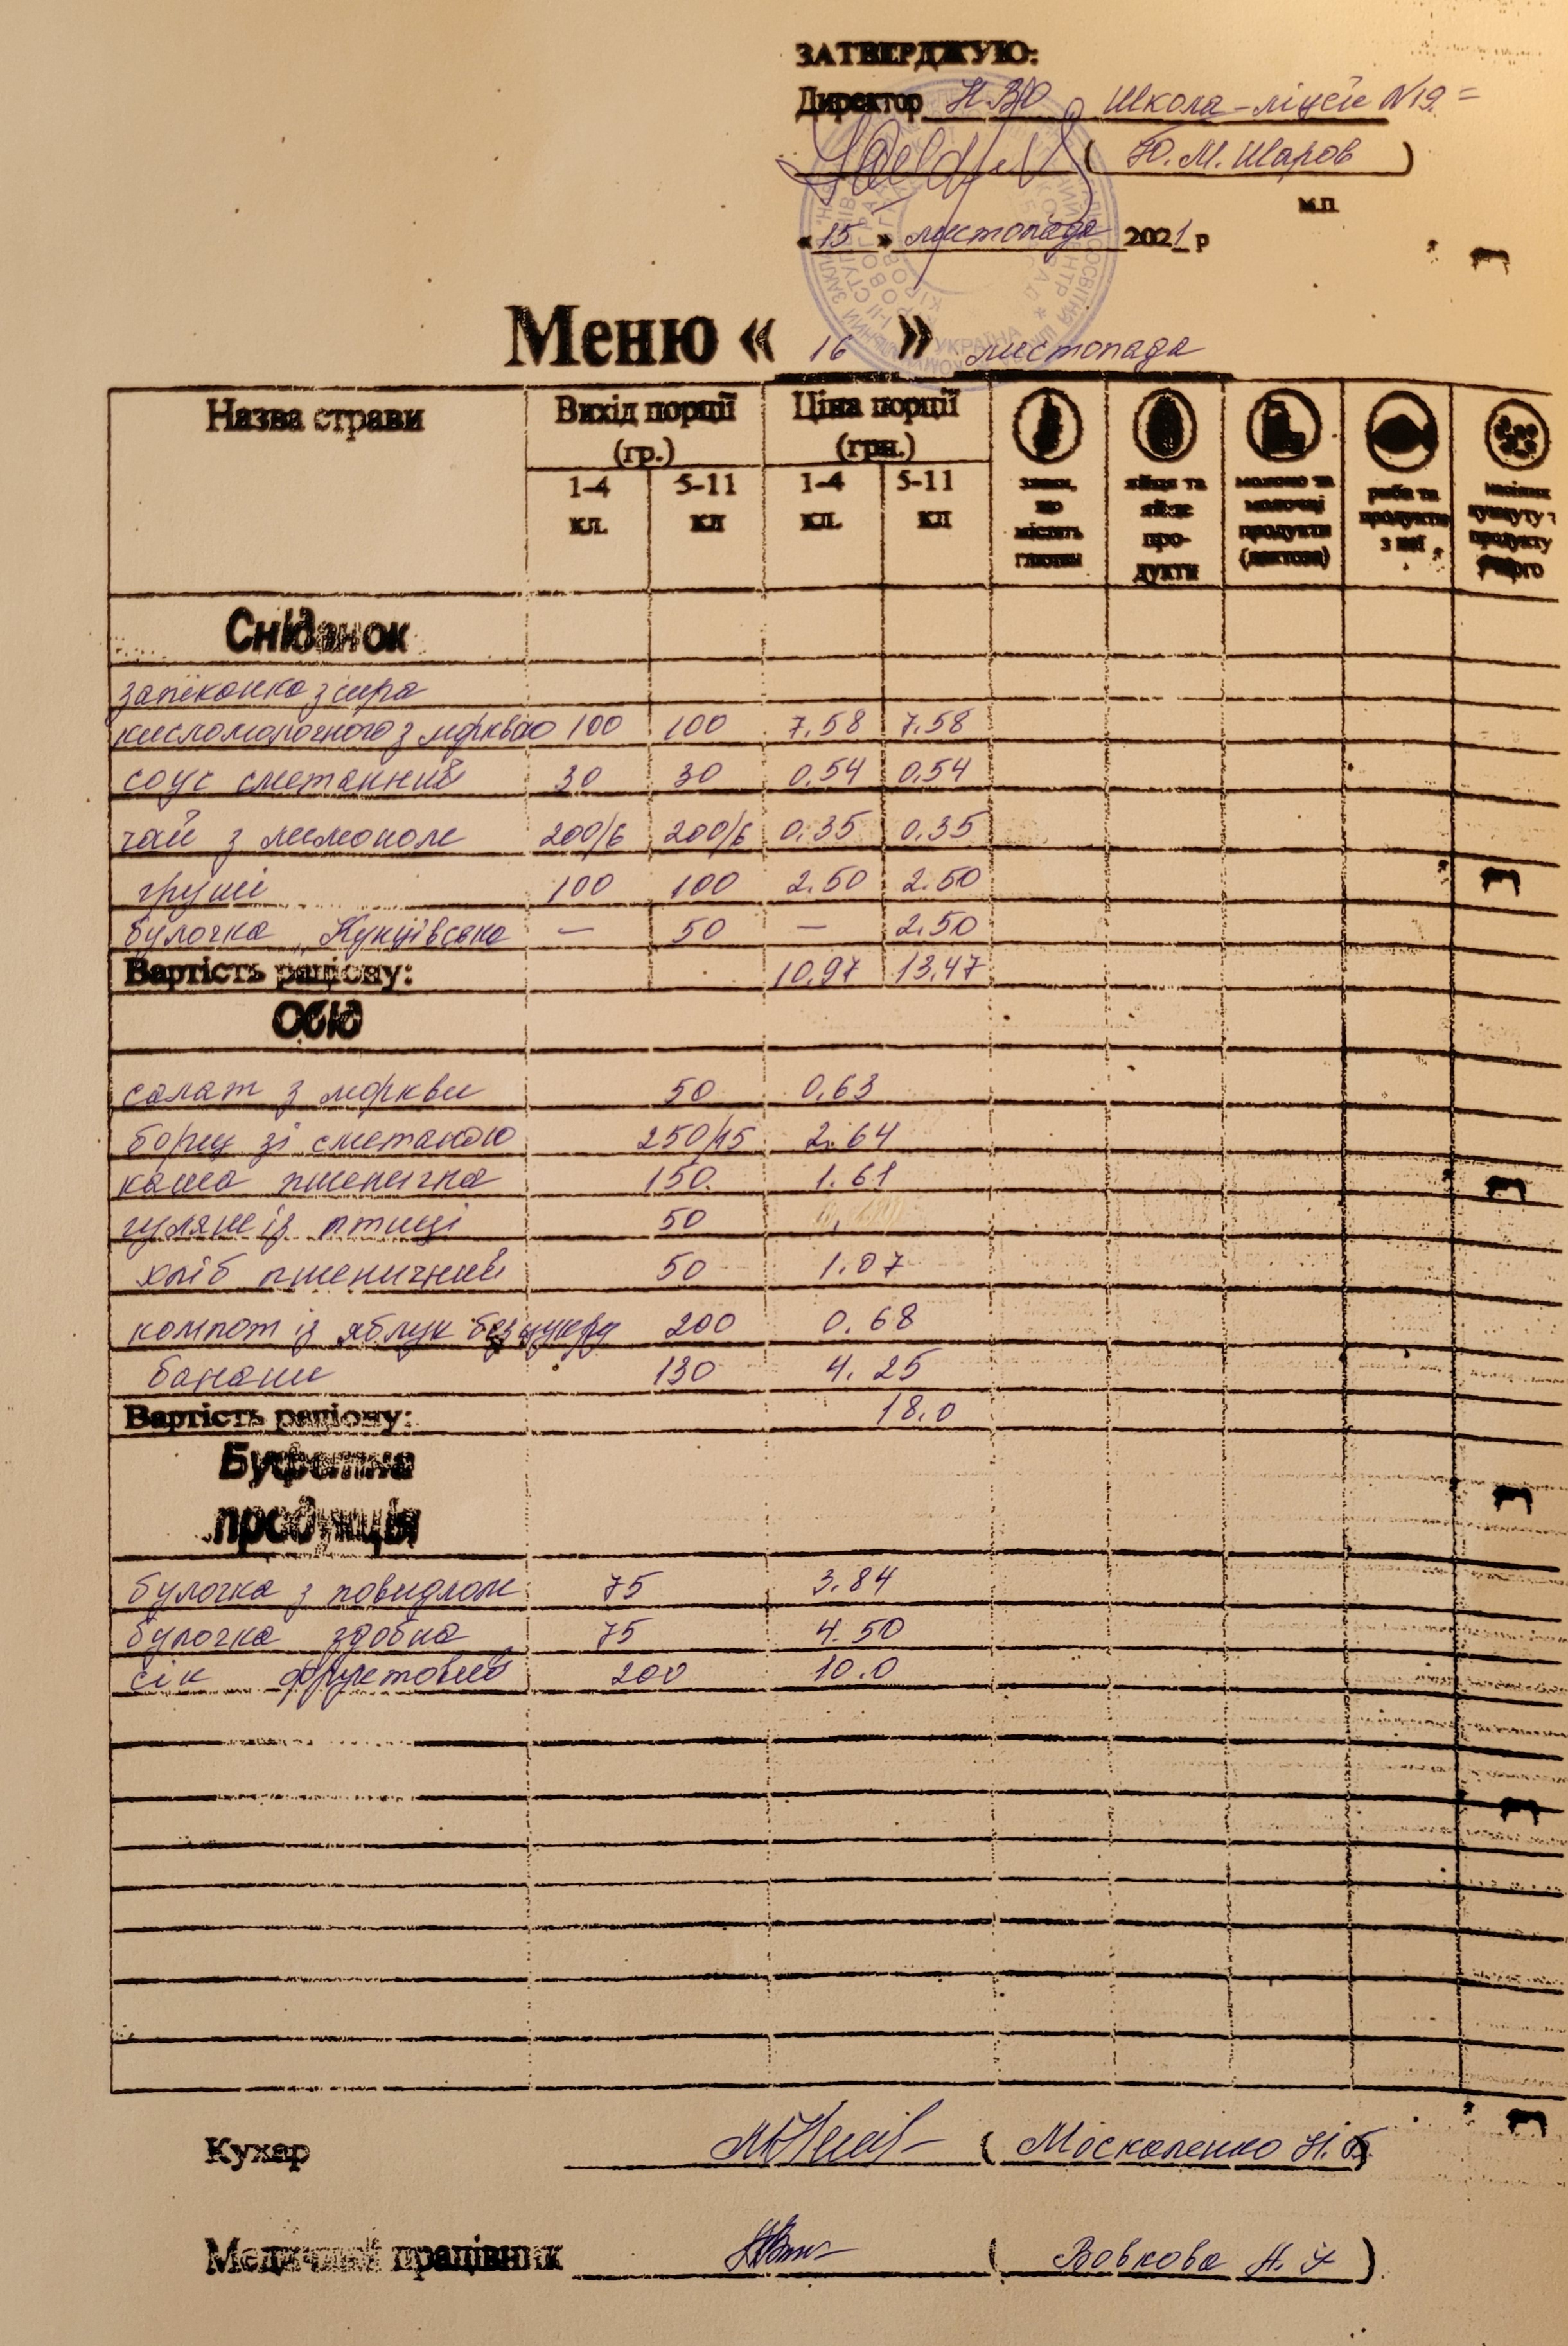 ЗАТВЕРДЖУЮ:
Директор НВО Школа-ліцей №19=
( Ю.М. Шаров )
м.п.
«15» листопада 2021 р
Меню « 16 » листопада
Назва страви Вихід порції (гр.) Ціна порції (грн.)
1-4 кл. 5-11 кл 1-4 кл. 5-11 кл
злаки, що містять глютен
яйця та яйце про- дукти
молоко та молочні продукти (лактоза)
риба та продукти з неї
насіння кунжуту
продукту
УКРАЇНА
Сніданок
запіканка з сира
кисломолочного з морквою 100 100 7.58 7.58
соус сметанний 30 30 0.54 0.54
чай з лимоном 200/6 200/6 0.35 0.35
груші 100 100 2.50 2.50
булочка Кунцівська — 50 — 2.50
Вартість раціону: 10.97 13.47
Обід
салат з моркви 50 0.63
борщ зі сметаною 250/15 2.64
каша пшенична 150. 1.61
гуляш із птиці 50
хліб пшеничний 50 1.07
компот із яблук без цукру 200 0.68
банани 130 4.25
Вартість раціону: 18.0
Буфетна
продукція
булочка з повидлом 75 3.84
булочка здобна 75 4.50
сік фруктовий 200 10.0
Кухар ( Москаленко Н.Б. )
Медичний працівник ( Вовкова Н. )